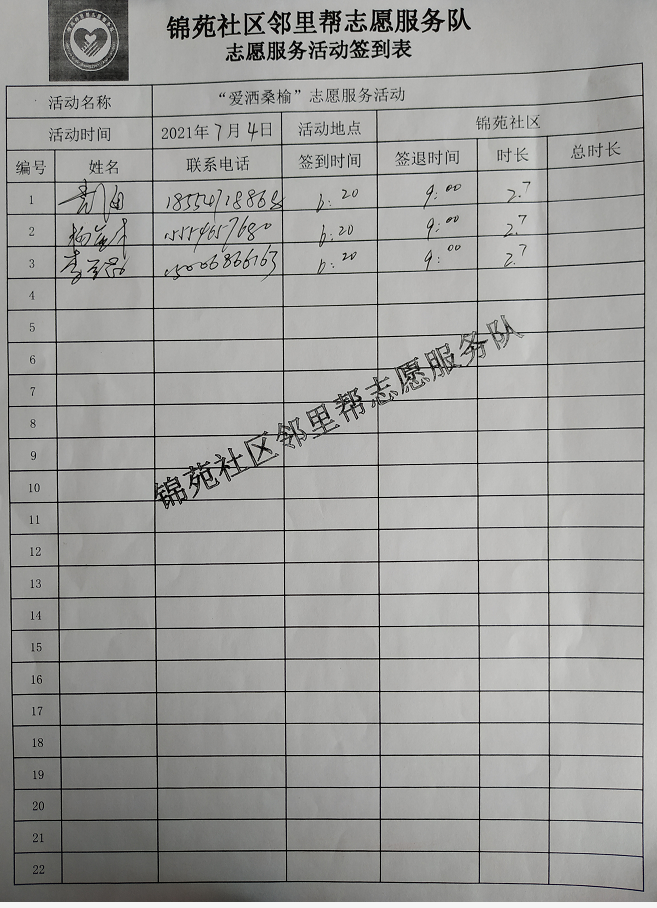 锦苑社区邻里帮志愿服务队
志愿服务活动签到表
活动名称 “爱洒桑榆”志愿服务活动
活动时间 2021年7月4日 活动地点 锦苑社区
编号 姓名 联系电话 签到时间 签退时间 时长 总时长
1 18554718868 6:20 9:00 2.7
2 15554657680 6:20 9:00 2.7
3 15066866163 6:20 9:00 2.7
4
5
6
7
8
9
10
11
12
13
14
15
16
17
18
19
20
21
22
锦苑社区邻里帮志愿服务队